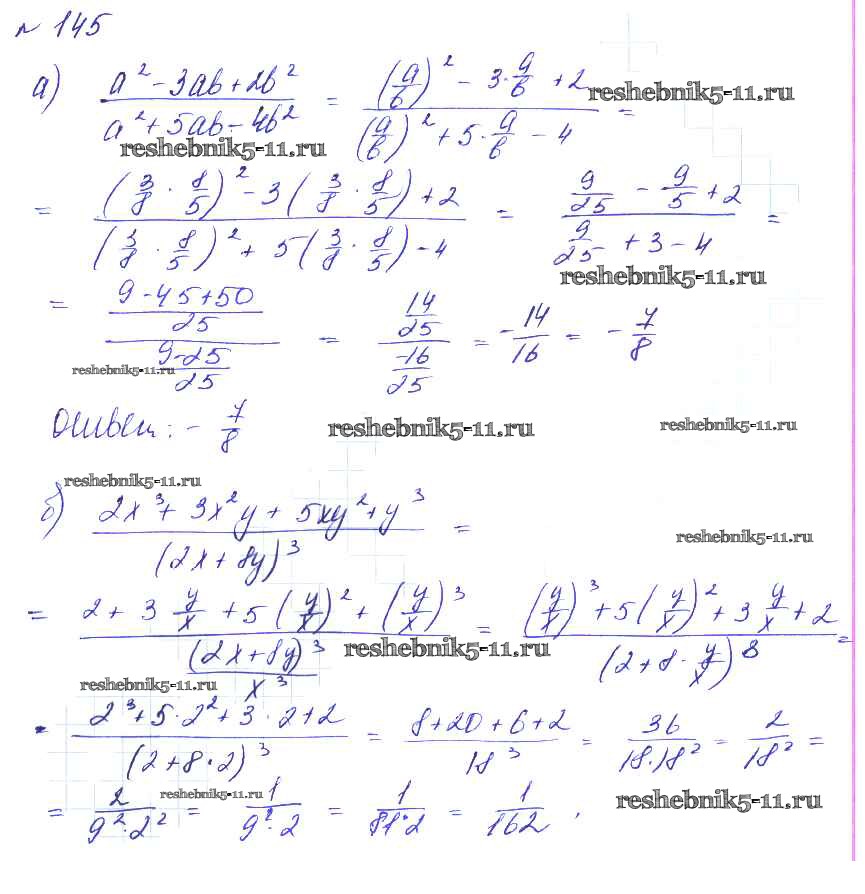 № 145
а) (a² - 3ab + 2b²)/(a² + 5ab - 4b²) = ((a/b)² - 3·a/b + 2)/((a/b)² + 5·a/b - 4) =
reshebnik5-11.ru
reshebnik5-11.ru
= ((3/8 · 8/5)² - 3(3/8 · 8/5) + 2)/((3/8 · 8/5)² + 5(3/8 · 8/5) - 4) = (9/25 - 9/5 + 2)/(9/25 + 3 - 4) =
reshebnik5-11.ru
= ((9 - 45 + 50)/25)/((9 - 25)/25) = (14/25)/(-16/25) = -14/16 = -7/8
reshebnik5-11.ru
Ответ: - 7/8
reshebnik5-11.ru
reshebnik5-11.ru
reshebnik5-11.ru
б) (2x³ + 3x²y + 5xy² + y³)/(2x + 8y)³ =
reshebnik5-11.ru
= (2 + 3 y/x + 5(y/x)² + (y/x)³)/((2x + 8y)³/x³) = ((y/x)³ + 5(y/x)² + 3 y/x + 2)/(2 + 8·y/x)³ =
reshebnik5-11.ru
reshebnik5-11.ru
= (2³ + 5·2² + 3·2 + 2)/(2 + 8·2)³ = (8 + 20 + 6 + 2)/18³ = 36/(18·18²) = 2/18² =
reshebnik5-11.ru
reshebnik5-11.ru
= 2/(9²·2²) = 1/(9²·2) = 1/(81·2) = 1/162 .